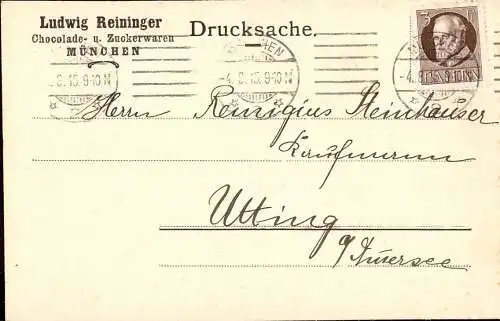 Ludwig Reininger
Chocolade- u. Zuckerwaren
MÜNCHEN
Drucksache.
MÜNCHEN
-4.8.15.9-10N
3
Herrn Remigius Steinhauser
Kaufmann
Utting
a/Ammersee